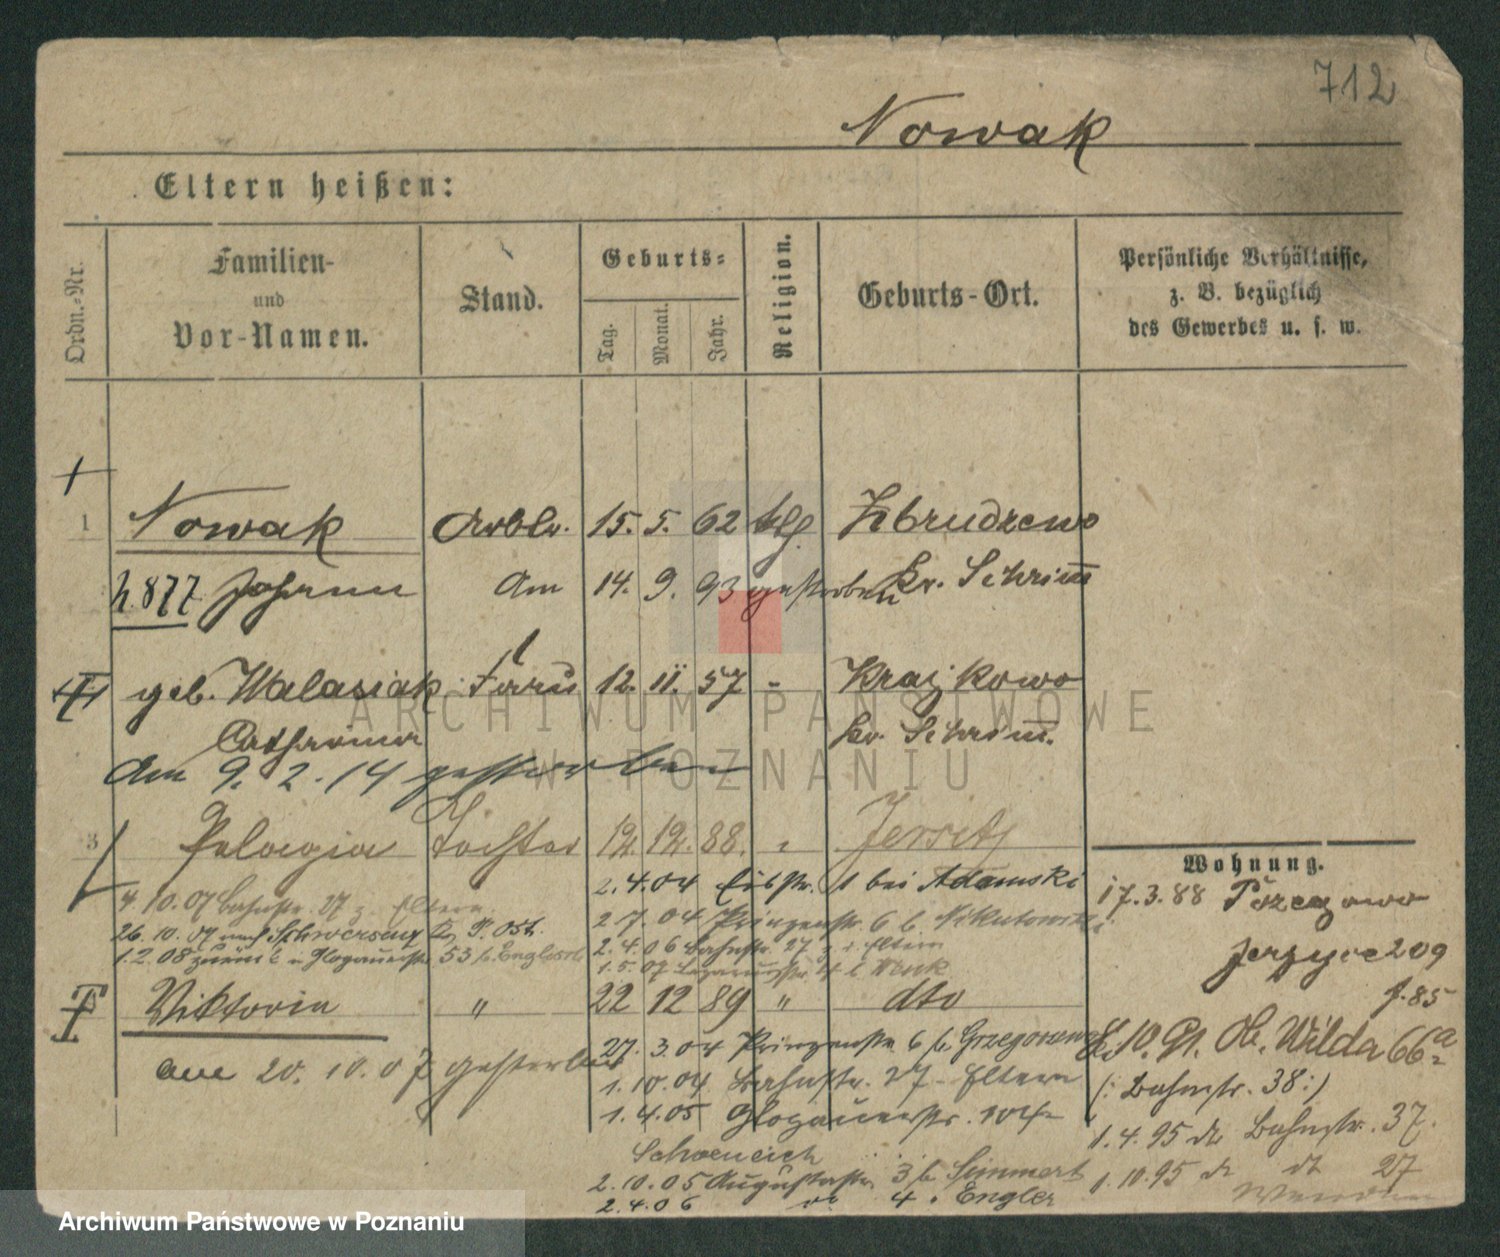 712
Nowak
Eltern heißen:
Ordn.-Nr.
Familien-
und
Vor-Namen.
Stand.
Geburts-
Tag.
Monat.
Jahr.
Religion.
Geburts-Ort.
Persönliche Verhältnisse,
z. B. bezüglich
des Gewerbes u. s. w.
1 Nowak Arbtr. 15. 5. 62 ktl. Zbrudzewo
h. 877 Johann Am 14. 9. 93 gestorben Kr. Schrimm
geb. Walasiak Frau 12. 11. 57 " Krajkowo
Catharina Kr. Schrimm.
Am 9. 2. 14 gestorben
3 Pelagia Tochter 12. 12. 88. " Jersitz
2. 4. 04 bei Adamski
4. 10. 07 Bahnstr. 27 z. Eltern
2 7. 04 Prinzenstr. 6 b.
26. 10. 07 nach Schwersenz
2. 4. 06 Bahnstr. 27 z. d. Eltern
1. 2. 08 zurück Glogauerstr. 53 b.
1. 5. 07
Viktoria " 22 12 89 " dto
27. 3. 04 Prinzenstr. 6 b.
am 20. 10. 07 gestorben
1. 10. 04 Bahnstr. 27 Eltern
1. 4. 05 Glogauerstr. 104
Schoeneich
2. 10. 05 Augustastr. 3 b.
2. 4. 06 do 4 " Engler
Wohnung.
17. 3. 88
Jerzyce 209
J. 85
10. 91. Ob. Wilda 66a
(: Bahnstr. 38 :)
1. 4. 95 do Bahnstr. 37.
1. 10. 95 do dt 27
ARCHIWUM PAŃSTWOWE
W POZNANIU
Archiwum Państwowe w Poznaniu